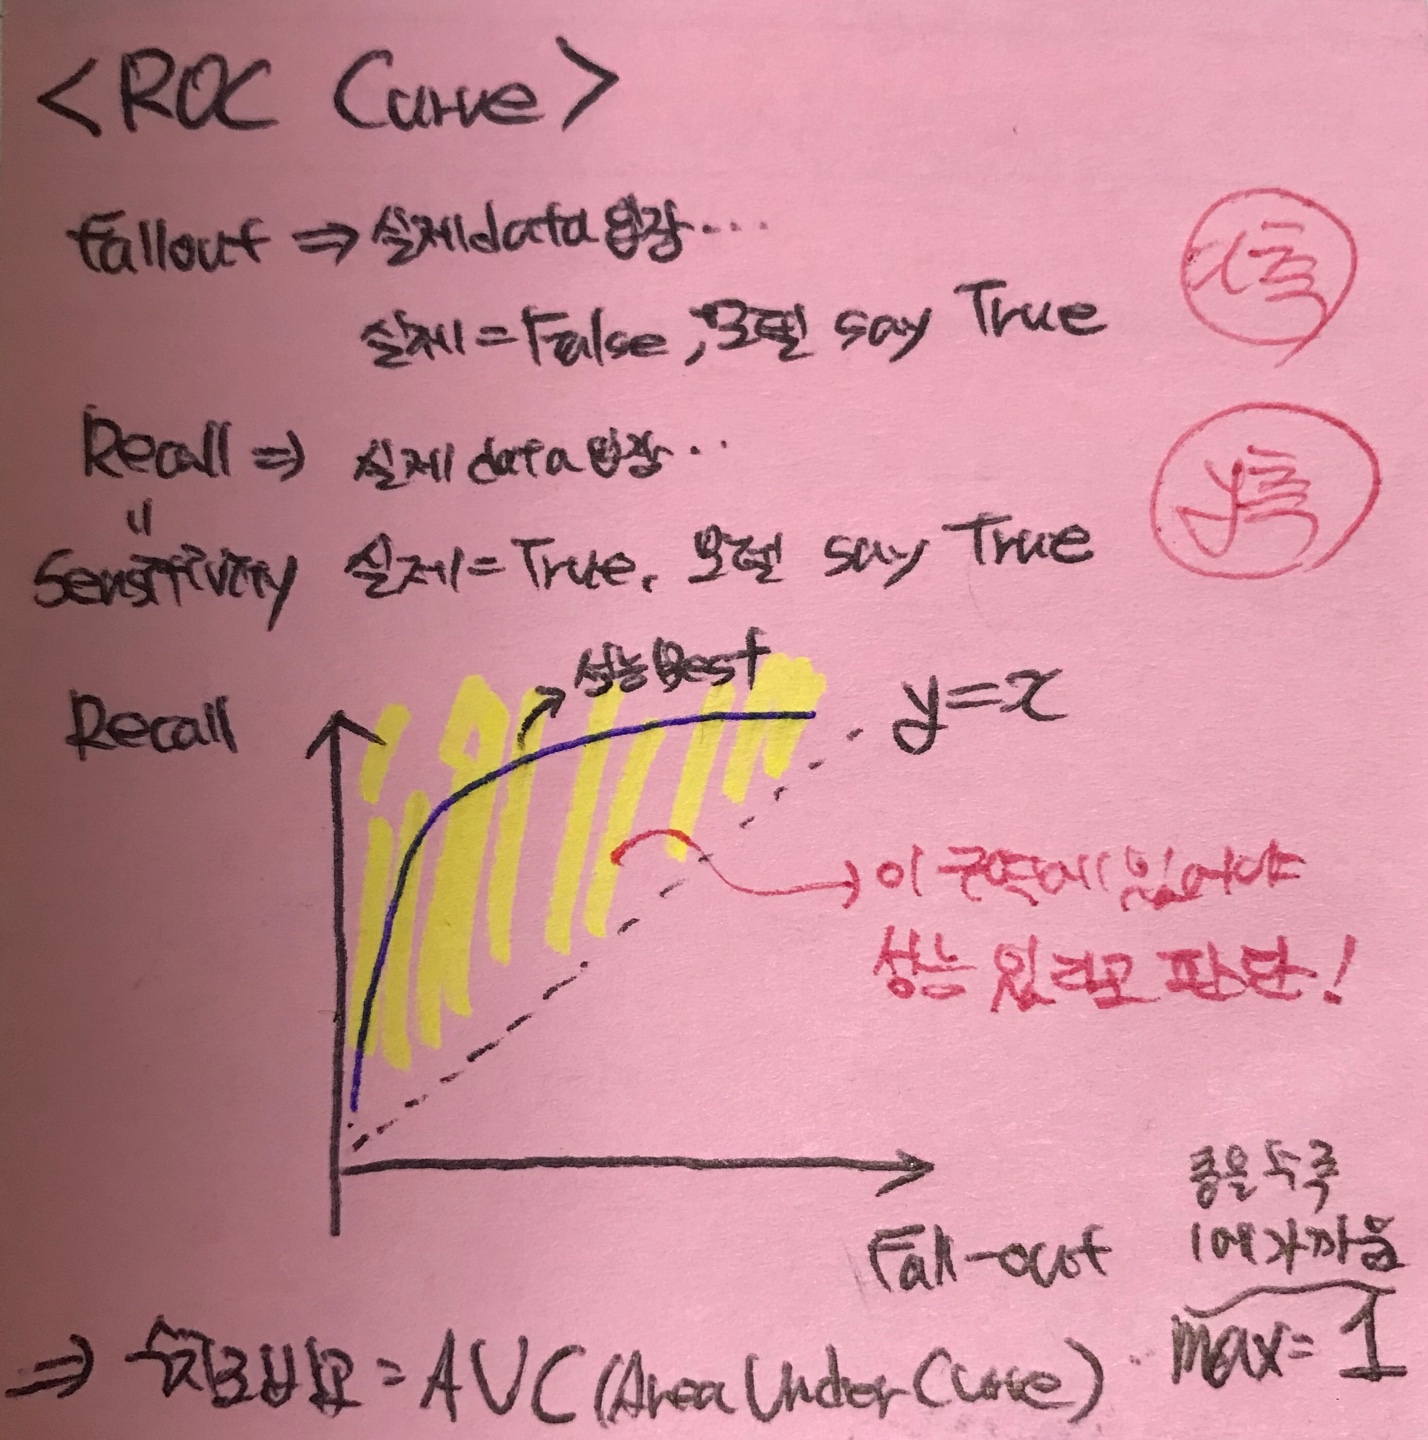 <ROC Curve>
Fallout ⇒ 실제data 입장...
x축
실제=False, 모델 say True
Recall ⇒ 실제 data 입장..
y축
=
Sensitivity 실제=True, 모델 say True
Recall
성능Best
y=x
이 구역에 있어야
성능 있다고 판단!
좋을수록
1에 가까움
Fall-out
max=1
⇒ 수치로 비교=AUC(Area Under Curve)